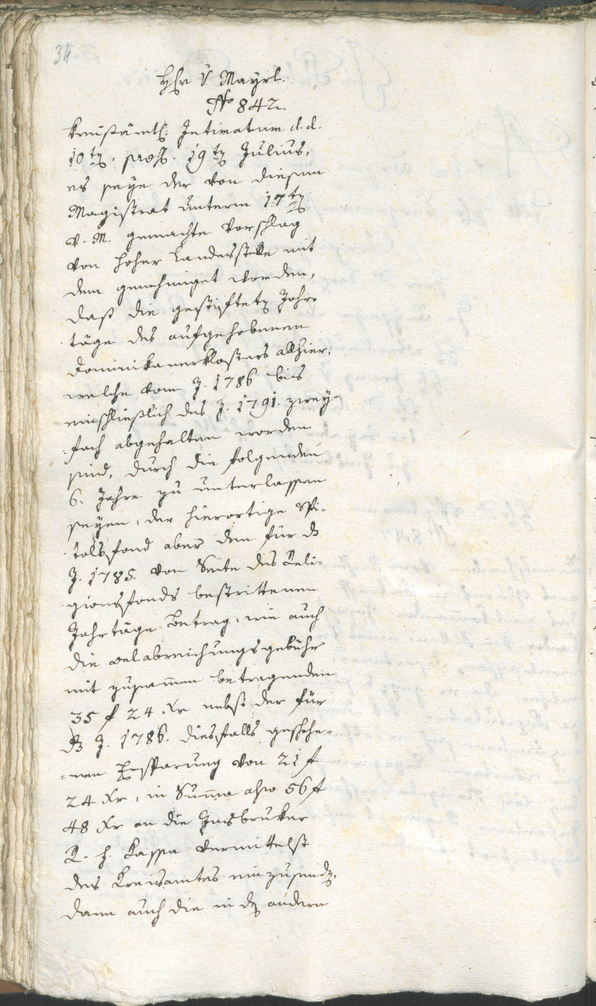 34
Hhr v Mayrl.
No 842.
Kreisämtl: Intimatum d. d.
10ten, praes. 19ten Julius,
es seye der von diesem
Magistrat unterm 17ten
v. M. gemachte Vorschlag
von hoher Landesstelle mit
dem genehmiget worden,
daß die gestifteten Jahr-
täge des aufgehobenen
Dominikanerklosters allhier,
welche vom J. 1786 bis
einschließlich des J. 1791. zwey
fach abgehalten worden
sind, durch die folgenden
6. Jahre zu unterlassen
seyen, der hierortige Spi-
talsfond aber den für das
J. 1785. von Seite des Reli-
gionsfonds bestrittenen
Jahrtäge Betrag, wie auch
die Oelabreichungsgebühr
mit zusammen betragenden
35 f 24 Xr nebst der für
das J. 1786. diesfalls geschehe-
nen Ersparung von 21 f
24 Xr, in Summa also 56 f
48 Xr an die Innsbruker
R. f. Kassa vermittelst
des Kreisamtes einzusenden,
dann auch die in den andern